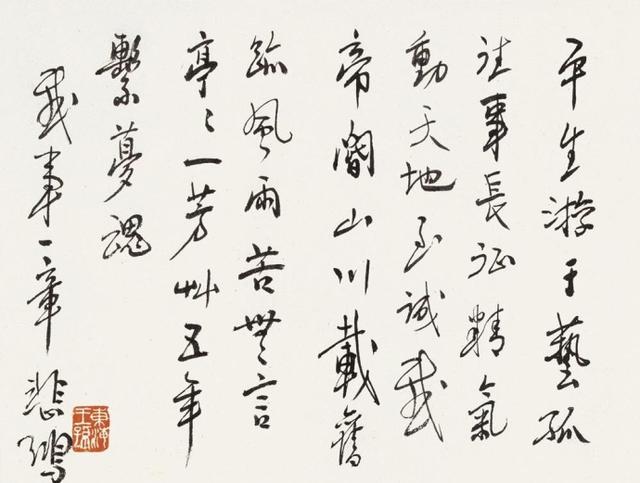 平生游于藝孤
往事長征精氣
動天地至誠感
帝閽山川載舊
跡風雨苦無言
亭〻一芳艸五年
繫夢魂
感事一章 悲鴻
東海王孫